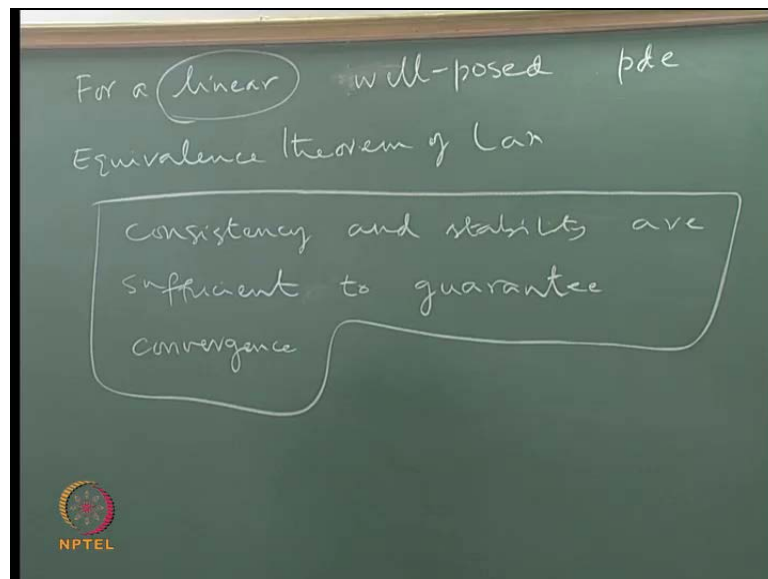 For a linear well-posed pde
Equivalence theorem of Lax
consistency and stability are
sufficient to guarantee
convergence
NPTEL